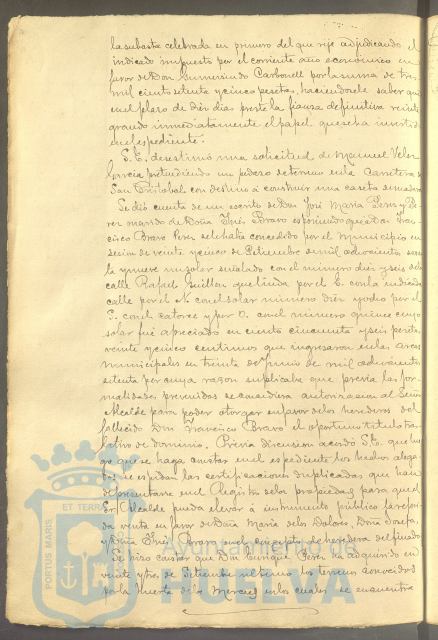 la subasta celebrada en primero del que rije adjudicando el
indicado impuesto por el corriente año economico en
favor de Don Gumersindo Carbonell por la suma de tres
mil ciento setenta y cinco pesetas, haciendosele saber que
en el plazo de diez dias preste la fianza definitiva reinte
grando inmediatamente el papel que se ha invertido
en el espediente.
S.E. desestimó una solicitud de Manuel Velez
Garcia pretendiendo un pedazo de terreno en la Carretera de
San Cristobal con destino á construir una caseta de madera
Se dió cuenta de un escrito de Don José Maria Perez y Pe
rez marido de Doña Inés Bravo esponiendo que á Don Fran
cisco Bravo Perez se le habia concedido por el Municipio en
sesion de veinte y cinco de Setiembre de mil ochocientos sesen
ta y nueve un solar señalado con el numero diez y seis de la
calle Rafael Guillen que linda por el E. con la indicada
calle por el N con el solar numero diez y ocho por el
S. con el catorce y por O. con el numero quince cuyo
solar fué apreciado en ciento cincuenta y seis pesetas
veinte y cinco centimos que ingresaron en las arcas
municipales en treinta de Junio de mil ochocientos
setenta por cuya razon suplicaba que previa las for
malidades prevenidas se concediera autorizacion al Señor
Alcalde para poder otorgar en favor de los herederos del
fallecido Don Francisco Bravo el oportuno titulo tras
lativo de dominio. Previa discusion acordó S.E. que lue
go que se haga constar en el espediente los hechos alega
dos se espidan las certificaciones duplicadas que han
de presentarse en el Registro de la propiedad para que el
Sr Alcalde pueda elevar á instrumento público la referi
da venta en favor de Doña Maria de los Dolores, Doña Josefa,
y Doña Inés Bravo en el concepto de herederas del finado
Se hizo constar que Don Enrique Perez ha adquirido en
veinte y tres de Setiembre ultimo los terrenos conocidos
por la Huerta de la Merced en los cuales se encuentra
PORTUS MARIS
ET TERRÆ
Ayuntamiento de
HUELVA